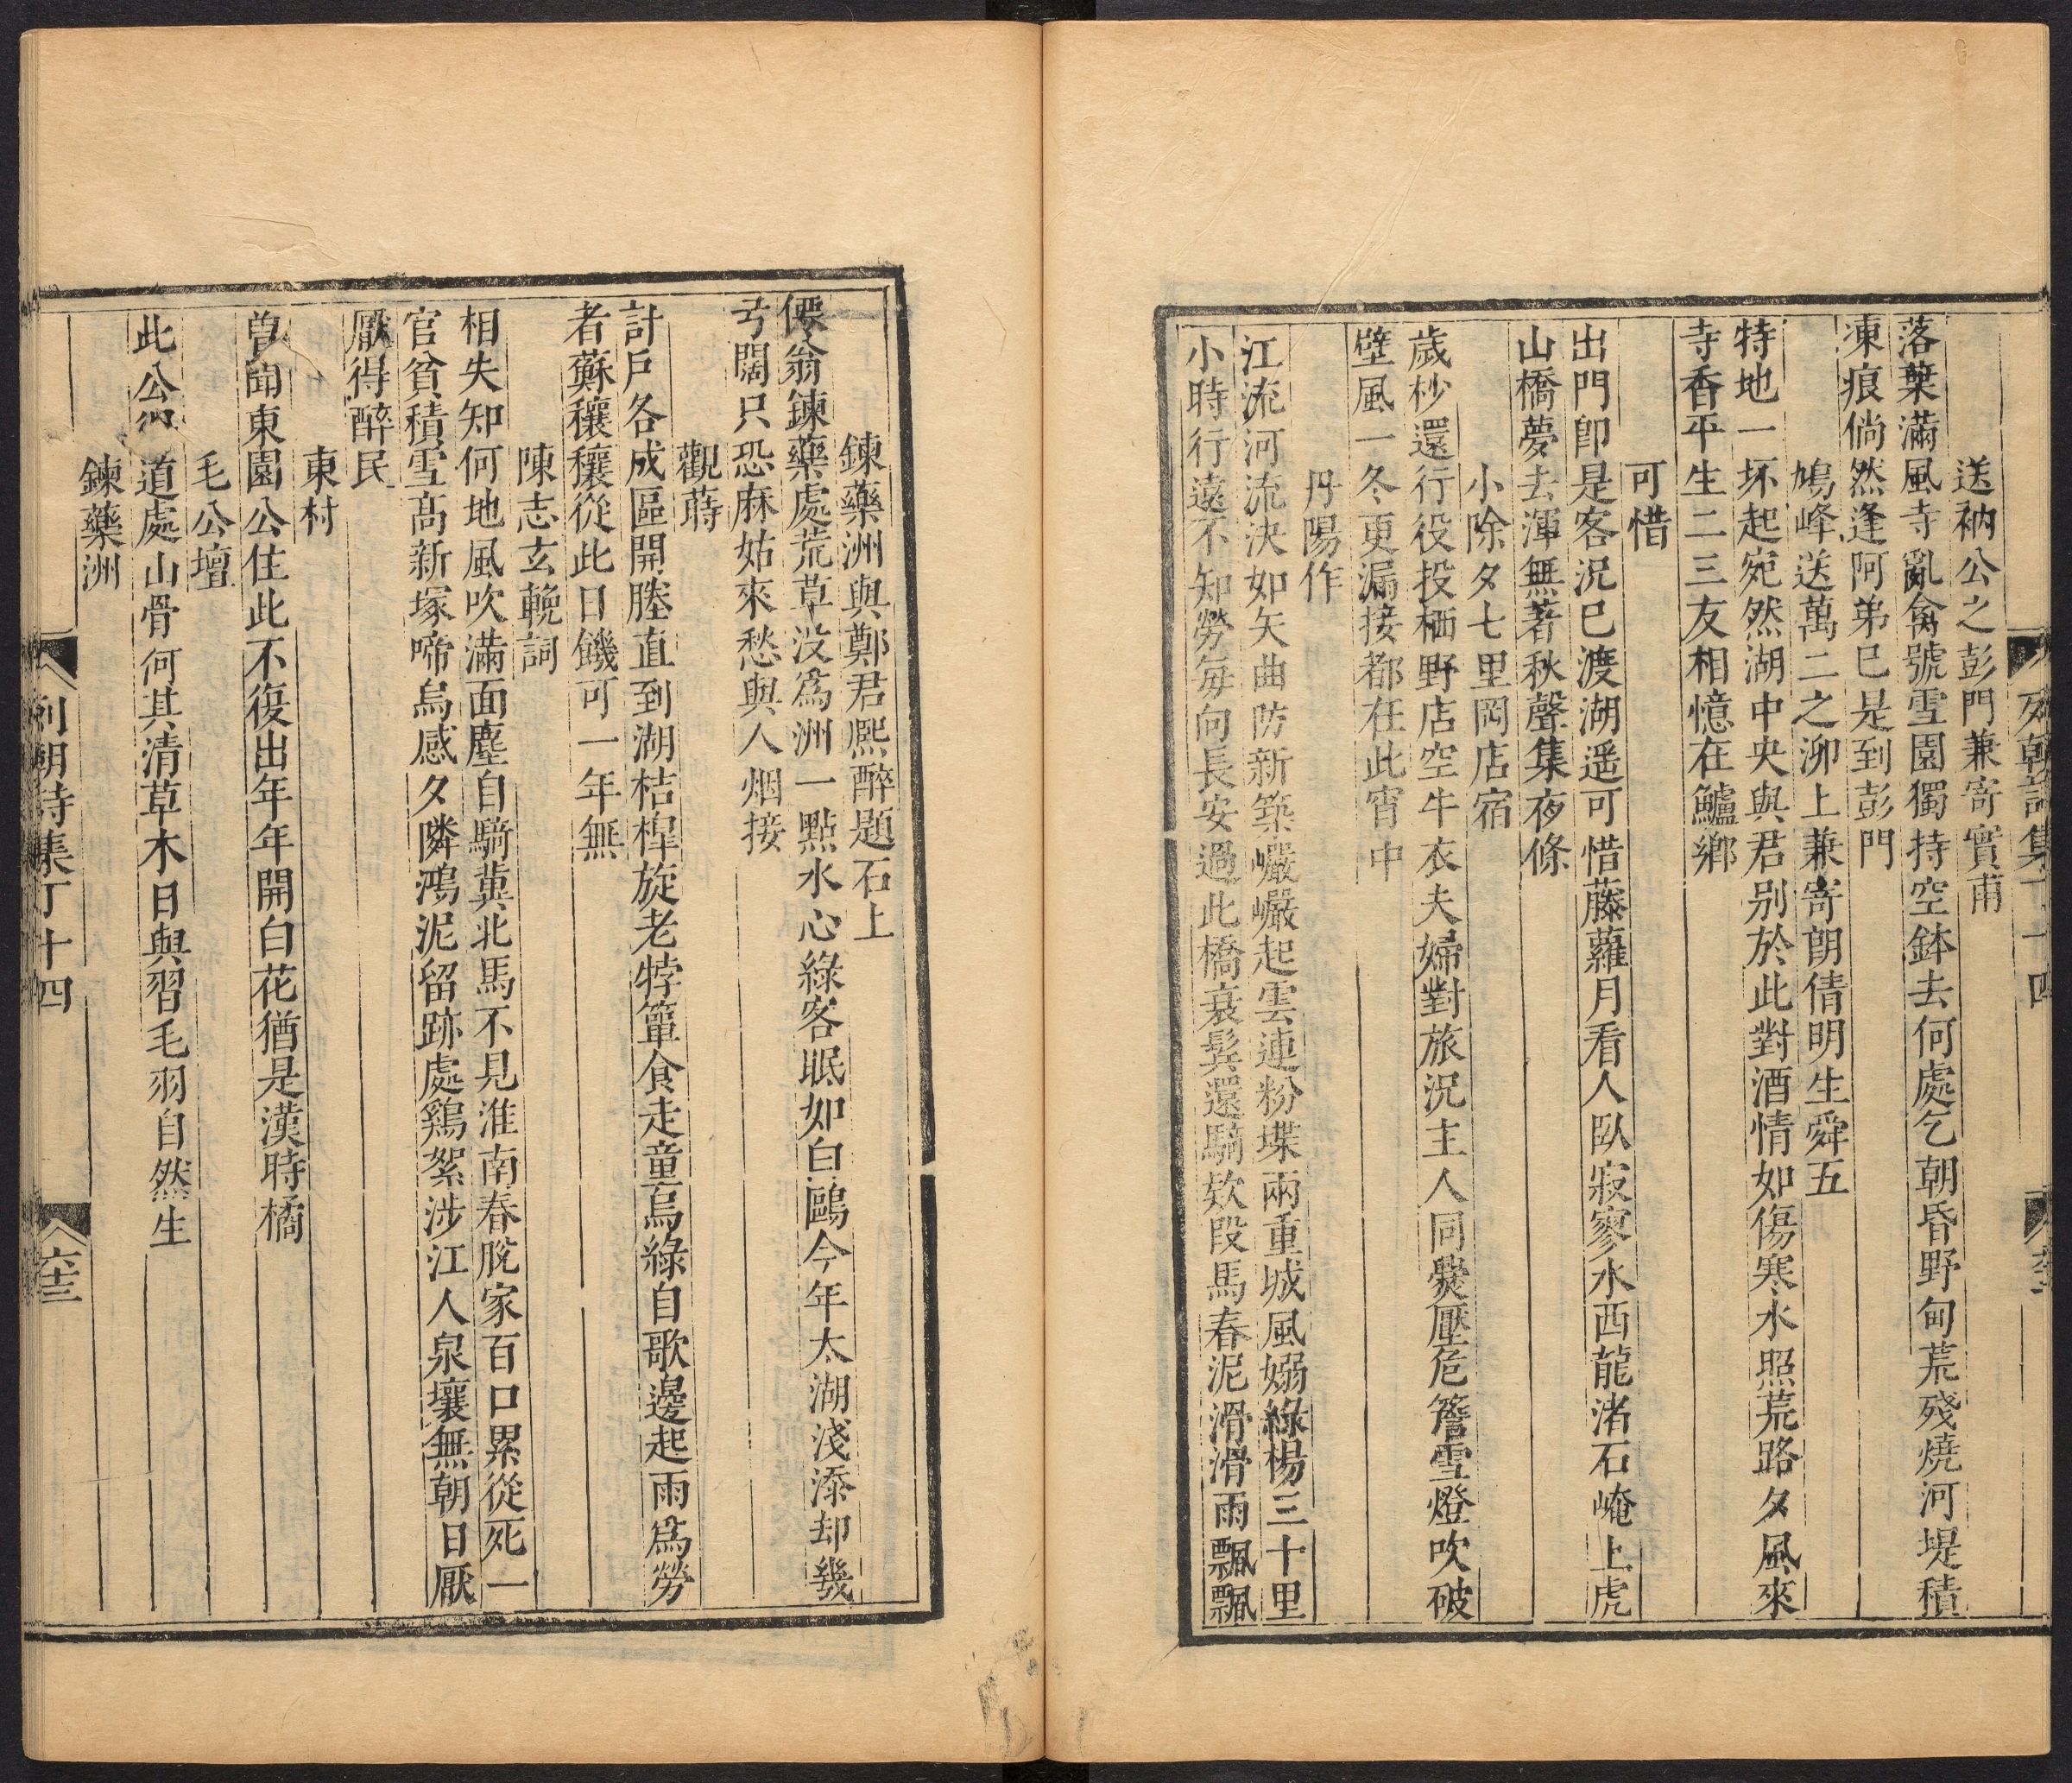 列朝詩集丁十四
送衲公之彭門兼寄實甫
落葉滿風寺亂禽號雪園獨持空鉢去何處乞朝昏野甸荒殘燒河堤積
凍痕倘然逢阿弟已是到彭門
鳩峰送萬二之泖上兼寄朗倩明生舜五
特地一坏起宛然湖中央與君別於此對酒情如傷寒水照荒路夕風來
寺香平生二三友相憶在鱸鄉
可惜
出門卽是客況已渡湖遥可惜藤蘿月看人臥寂寥水西龍渚石崦上虎
山橋夢去渾無著秋聲集夜條
小除夕七里岡店宿
歲杪還行役投栖野店空牛衣夫婦對旅況主人同爨壓危簷雪燈吹破
壁風一冬更漏接都在此宵中
丹陽作
江流河流決如矢曲防新築巗巗起雲連粉堞兩重城風嫋綠楊三十里
小時行遠不知勞每向長安過此橋衰鬂還騎欵段馬春泥滑滑雨飄飄
鍊藥洲與鄭君熈醉題石上
僊翁鍊藥處荒草没爲洲一點水心綠客眠如白鷗今年太湖淺添却幾
弓闊只恐麻姑來愁與人烟接
觀蒔
計戶各成區開塍直到湖桔槹旋老牸簞食走童烏綠自歌邊起雨爲勞
者蘇穰穰從此日饑可一年無
陳志玄輓詞
相失知何地風吹滿面塵自騎冀北馬不見淮南春脫家百口累從死一
官貧積雪高新塚啼烏感夕隣鴻泥留跡處鷄絮涉江人泉壤無朝日厭
厭得醉民
東村
曽聞東園公住此不復出年年開白花猶是漢時橘
毛公壇
此公 道處山骨何其清草木日與習毛羽自然生
鍊藥洲
列朝詩集丁十四
六十三